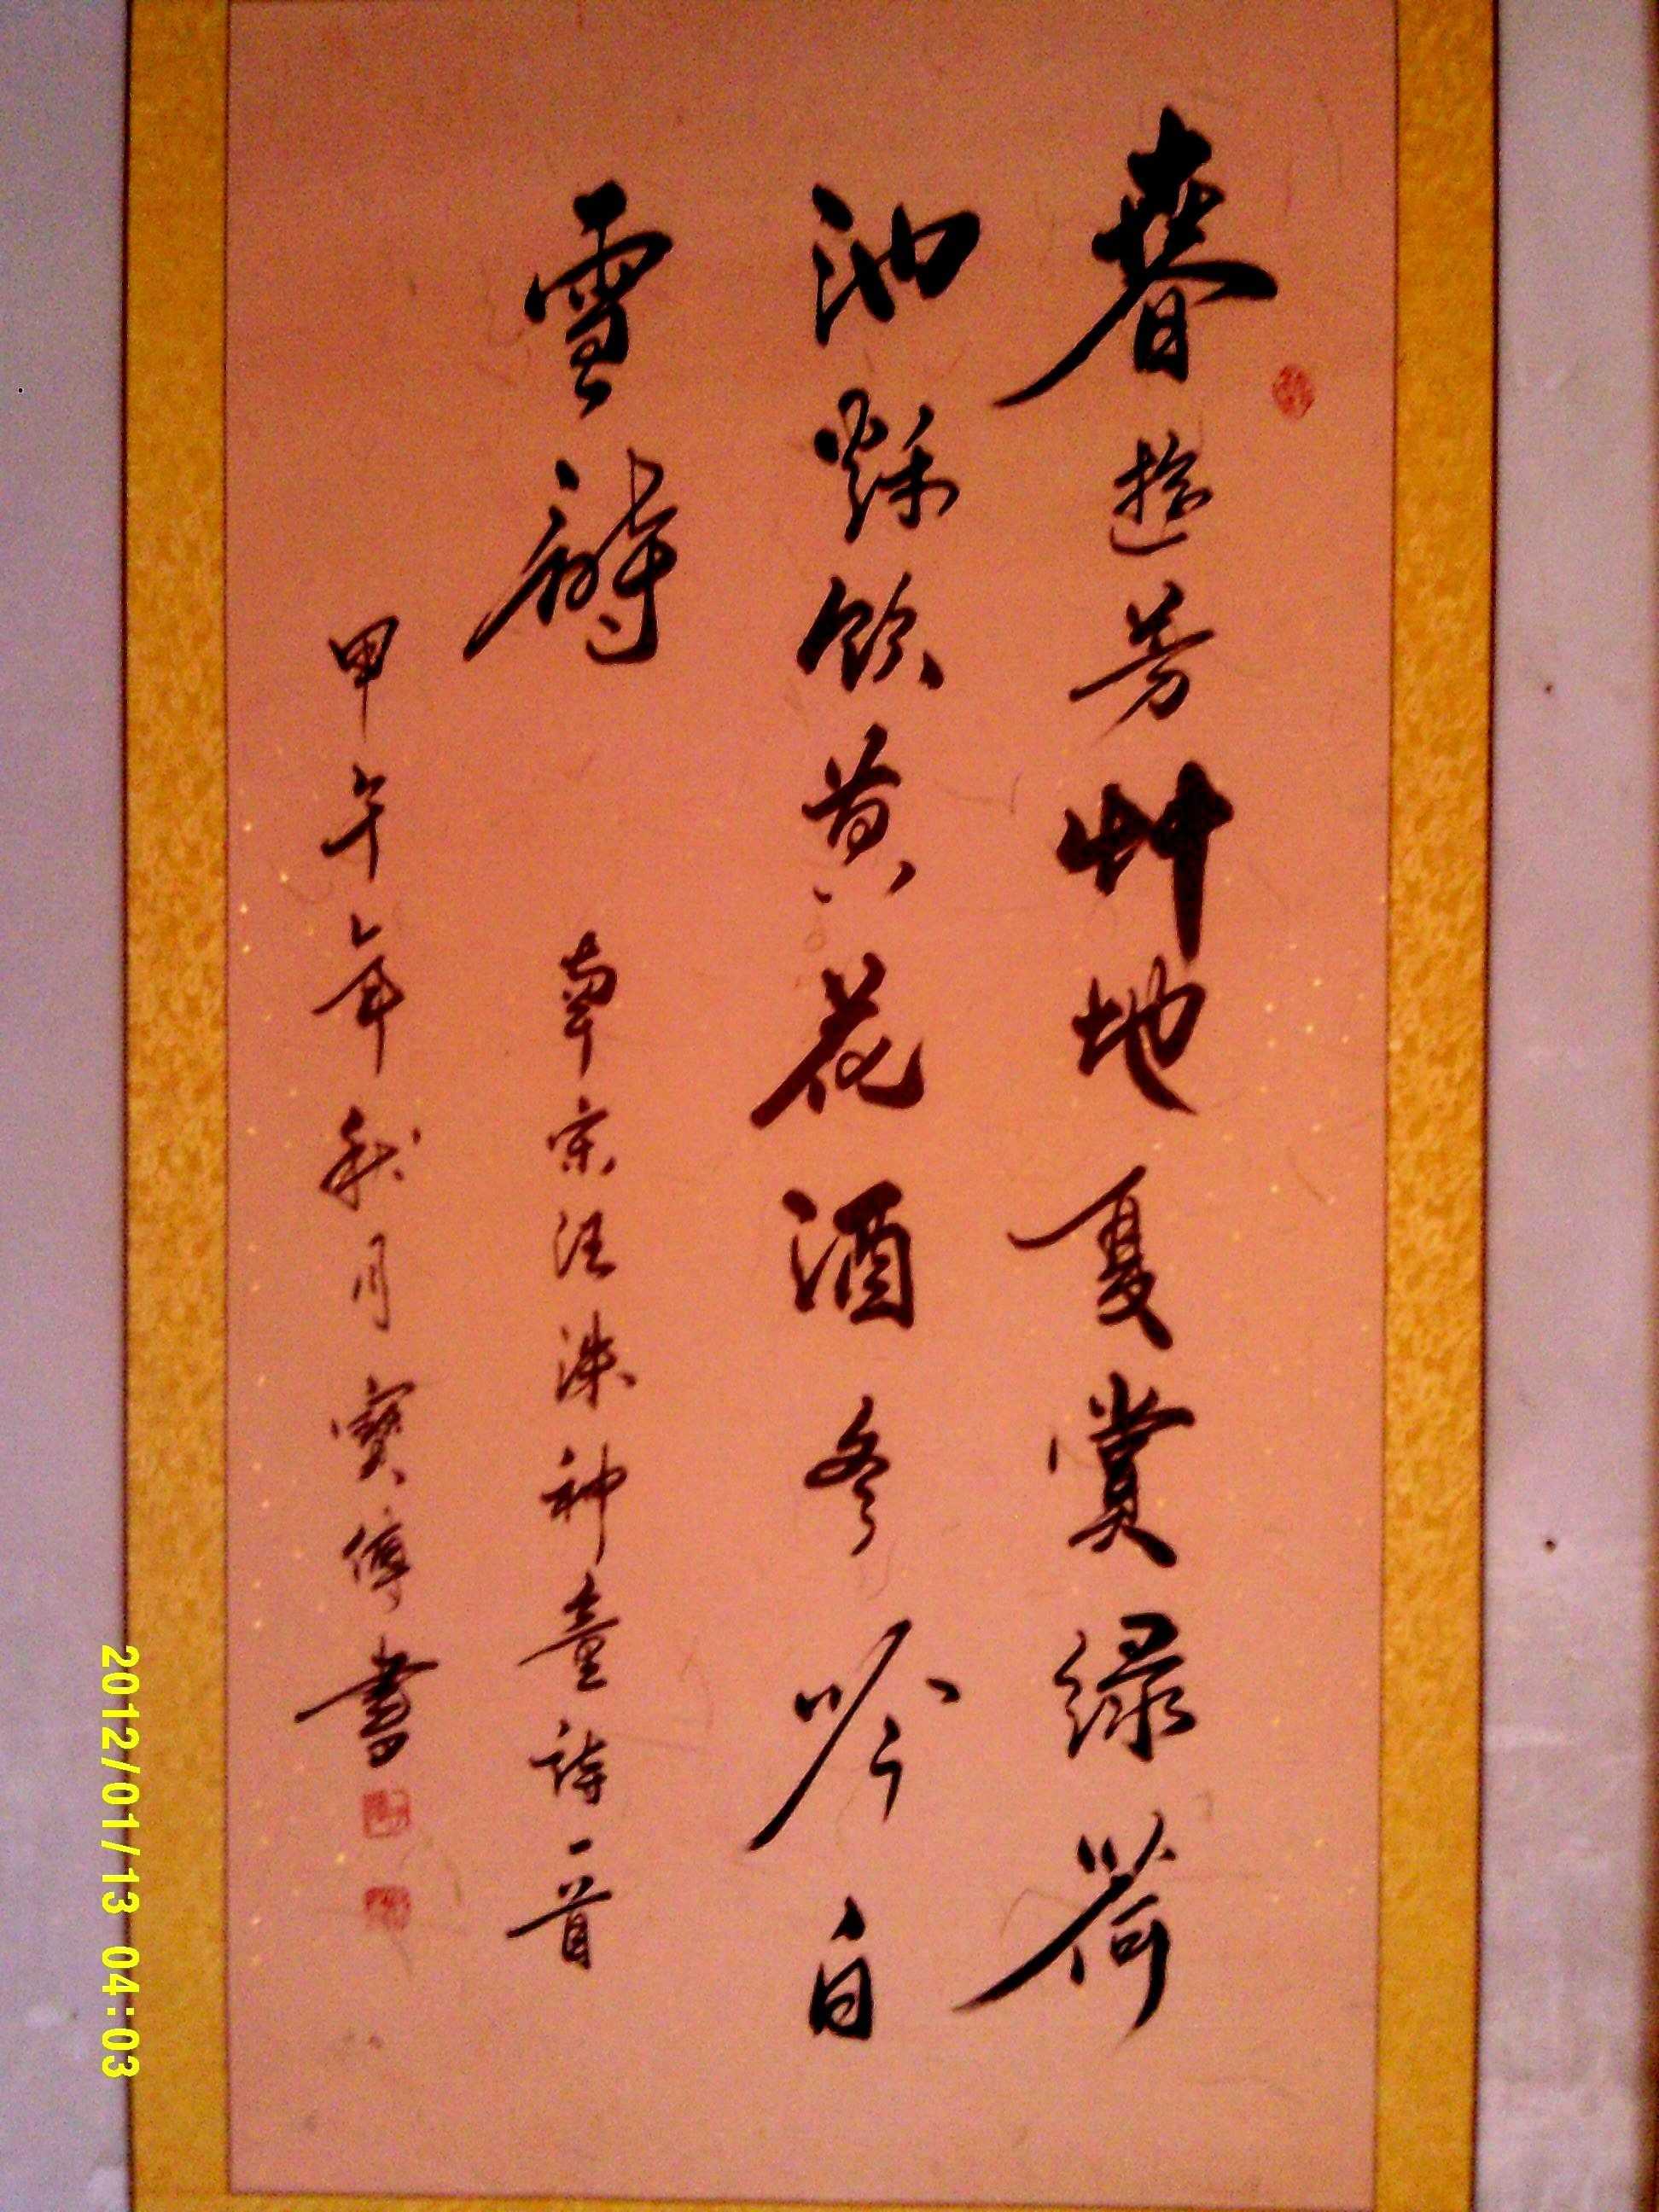 春遊芳艸地夏賞緑荷
池秌飲黄花酒冬吟白
雪詩
南宋汪洙神童詩一首
甲午年秋月寶偉書
2012/01/13 04:03